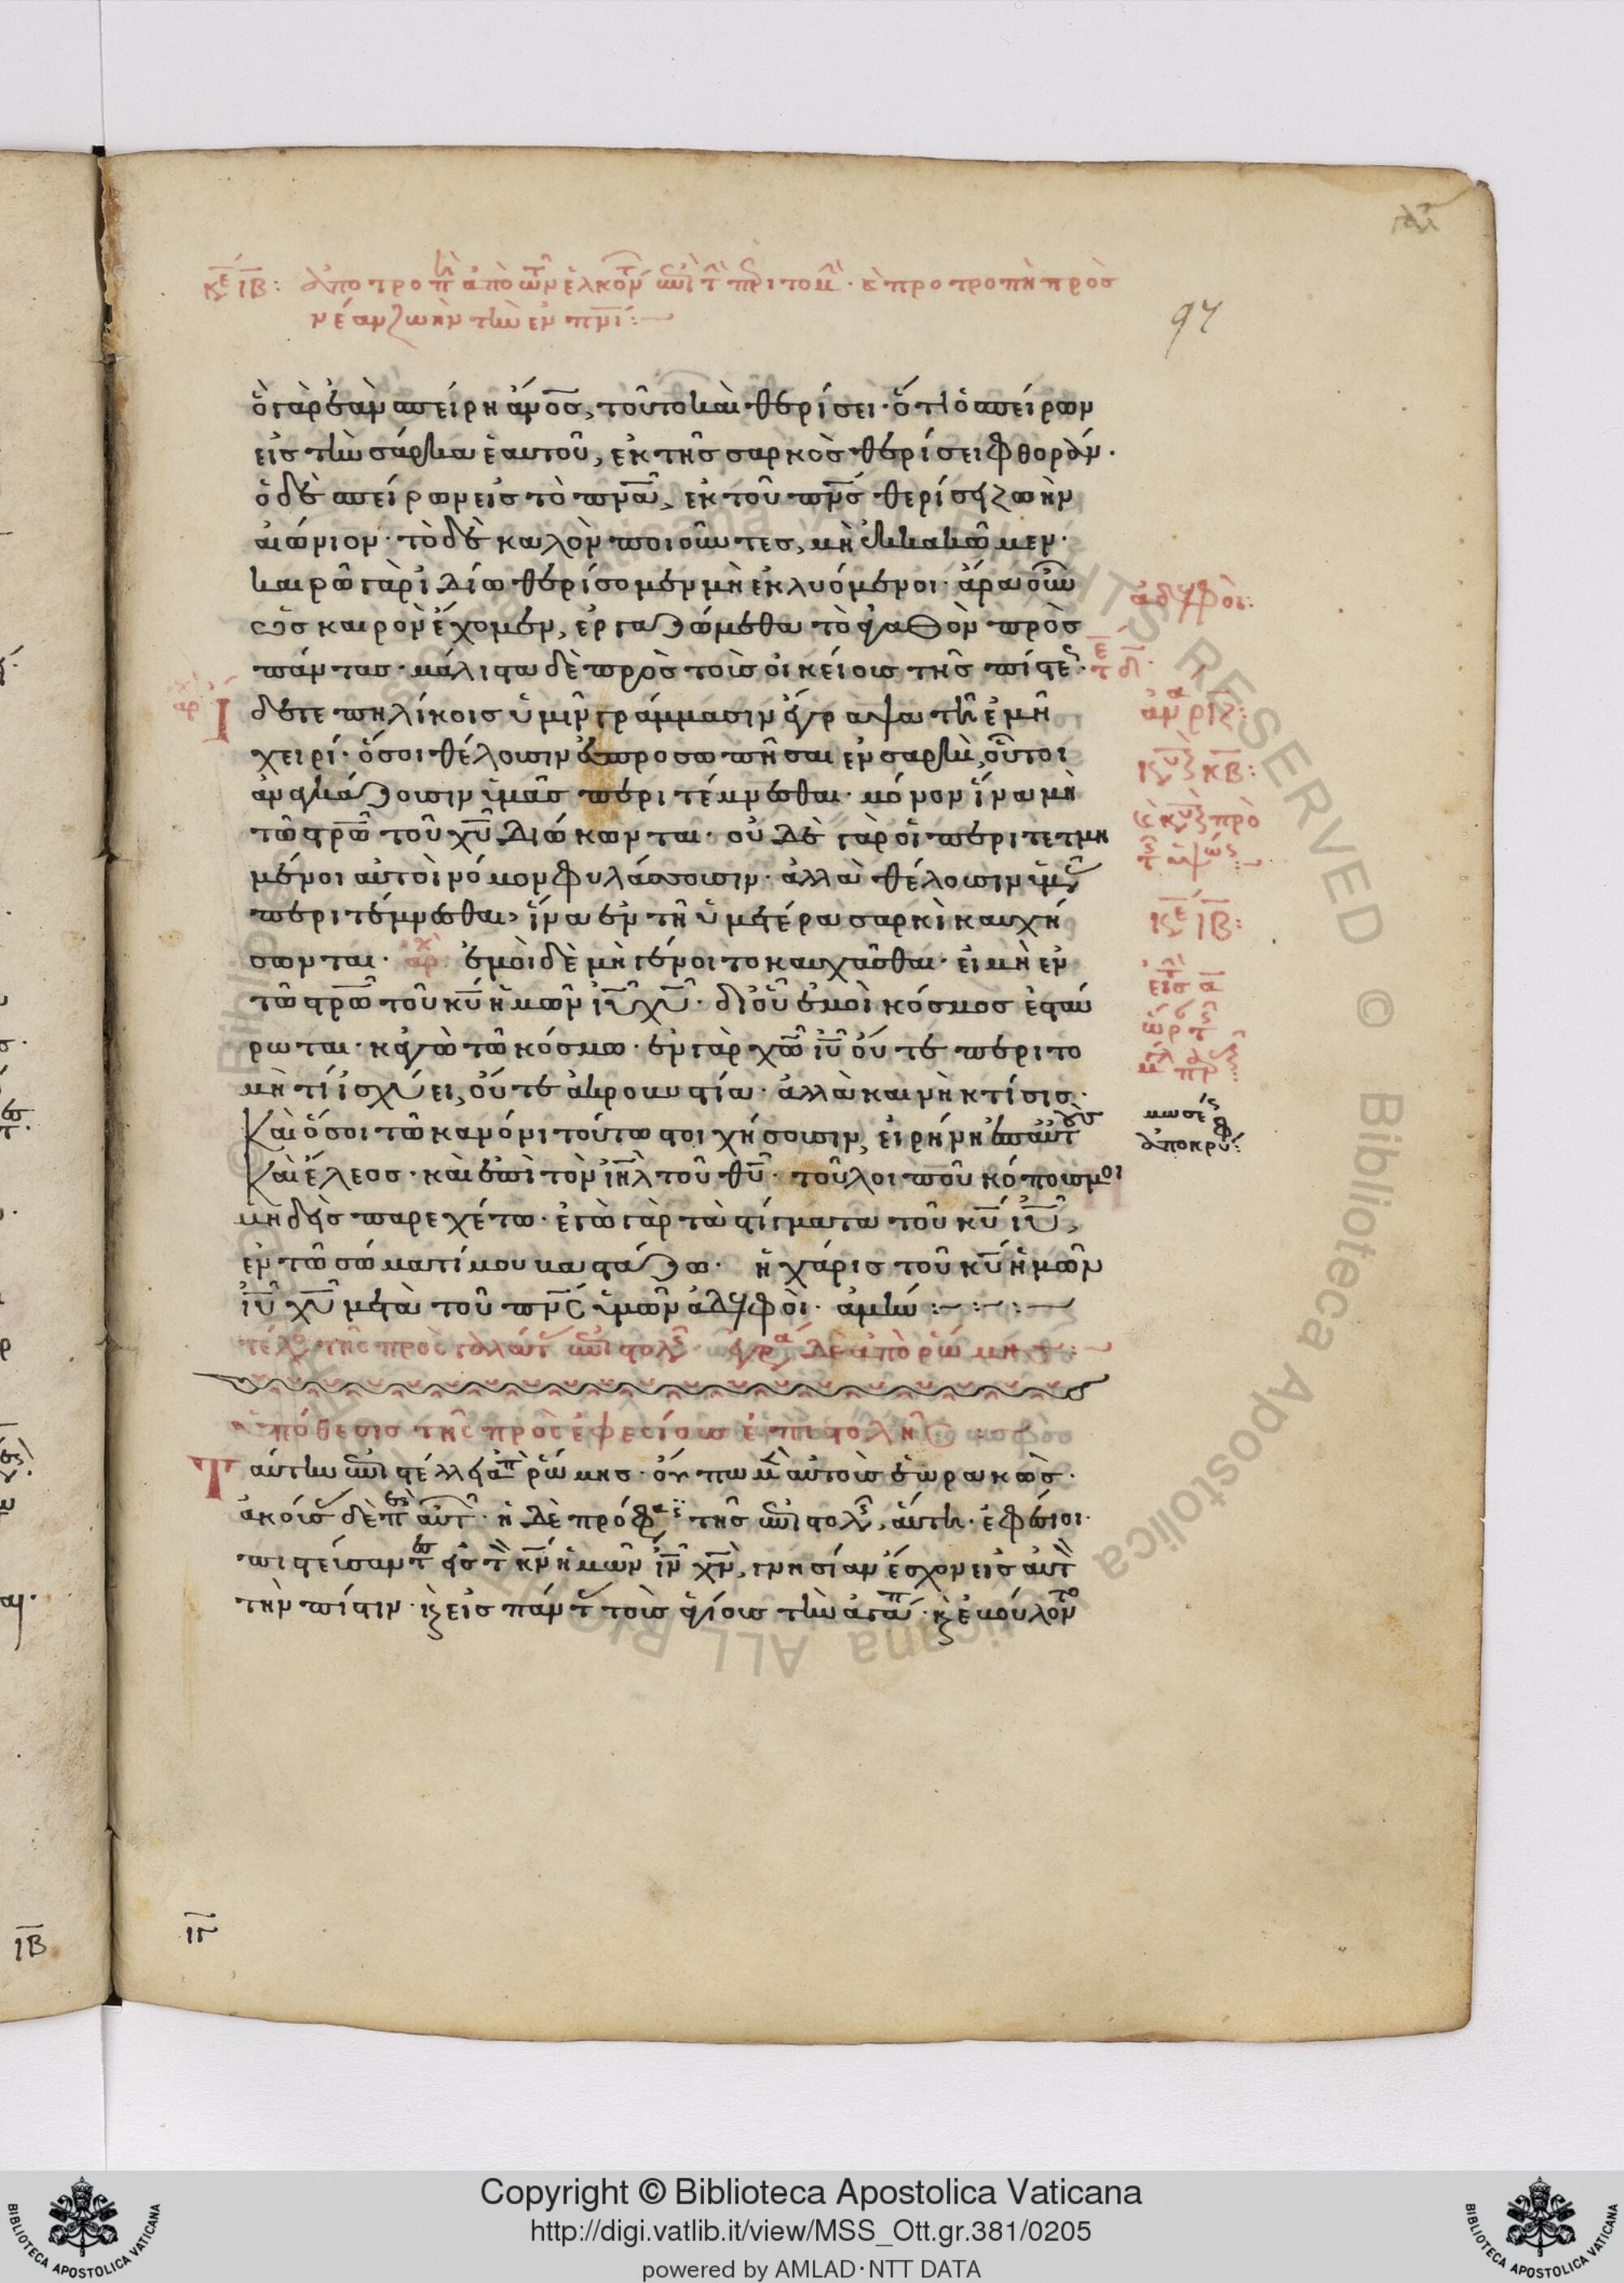 κε ιβ: ἀποτροπὴ ἀπὸ τῶν ἑλκόντων ἐπὶ τὴν περιτομὴν· καὶ προτροπὴ πρὸς
νέαν ζωὴν τὴν ἐν πνι:
97
ὃ γὰρ ἐὰν σπείρη ἄνος, τοῦτο καὶ θερίσει· ὅτι ὁ σπείρων
εἰς τὴν σάρκα ἑαυτοῦ, ἐκ τῆς σαρκὸς θερίσει φθοράν·
ὁ δὲ σπείρων εἰς τὸ πνα, ἐκ τοῦ πνς θερίσει ζωὴν
αἰώνιον· τὸ δὲ καλὸν ποιοῦντες, μὴ ἐκκακῶμεν·
καιρῶ γὰρ ἰδίω θερίσομεν μὴ ἐκλυόμενοι· ἄρα οὖν
ὡς καιρὸν ἔχομεν, ἐργαζώμεθα τὸ ἀγαθὸν πρὸς
πάντας· μάλιστα δὲ πρὸς τοὺς οἰκείους τῆς πίστεως·
Ἴδετε πηλίκοις ὑμῖν γράμμασιν ἔγραψα τῆ ἐμῆ
χειρί· ὅσοι θέλουσιν εὐπροσωπῆσαι ἐν σαρκὶ, οὗτοι
ἀναγκάζουσιν ὑμᾶς περιτέμνεσθαι· μόνον ἵνα μὴ
τῶ στρῶ τοῦ χυ διώκωνται· οὐδὲ γὰρ οἱ περιτετμη
μένοι αὐτοὶ νόμον φυλάσσουσιν· ἀλλὰ θέλουσιν ὑμᾶς
περιτέμνεσθαι, ἵνα ἐν τῆ ὑμετέρα σαρκὶ καυχή
σωνται· ἀρχ ἐμοὶ δὲ μὴ γένοιτο καυχᾶσθαι· εἰ μὴ ἐν
τῶ στρῶ τοῦ κυ ἡμῶν ιυ χυ· δι' οὗ ἐμοὶ κόσμος ἐσταύ
ρωται· κἀγὼ τῶ κόσμω· ἐν γὰρ χω ιυ οὔτε περιτο
μὴ τὶ ἰσχύει, οὔτε ἀκροβυστία· ἀλλὰ καινὴ κτίσις·
Καὶ ὅσοι τῶ κανόνι τούτω στοιχήσουσιν, εἰρήνη ἐπ' αὐτοὺς
Καὶ ἔλεος· καὶ ἐπὶ τὸν ιηλ τοῦ θυ· τοῦ λοιποῦ κόπους μοι
μηδεὶς παρεχέτω· ἐγὼ γὰρ τὰ στίγματα τοῦ κυ ιυ,
ἐν τῶ σώματί μου βαστάζω· ἡ χάρις τοῦ κυ ἡμῶν
ιυ χυ μετὰ τοῦ πνς ὑμῶν ἀδελφοὶ· ἀμήν:
τέλος τῆς πρὸς γαλάτας ἐπιστολῆς· ἐγράφη δὲ ἀπὸ ῥώμης:
ὑπόθεσις τῆς πρὸς ἐφεσίους ἐπιστολῆς:
Ταύτην ἐπιστέλλει ἀπὸ ῥώμης· οὔπω μὲν αὐτοὺς ἑωρακὼς·
ἀκούσας δὲ περὶ αὐτῶν· ἡ δὲ πρόφασις τῆς ἐπιστολῆς, αὕτη· ἐφέσιοι
πιστεύσαντες εἰς τὸν κν ἡμῶν ιν χν, γνησίαν ἔσχον εἰς αὐτὸν
τὴν πίστιν· καὶ εἰς πάντας τοὺς ἁγίους τὴν ἀγάπην· καὶ ἐβούλοντο
ἀδελφοὶ:
κε κβ:
κε ιβ:
ἀποκρύφ:
ιγ
ιβ
Copyright © Biblioteca Apostolica Vaticana
http://digi.vatlib.it/view/MSS_Ott.gr.381/0205
powered by AMLAD·NTT DATA